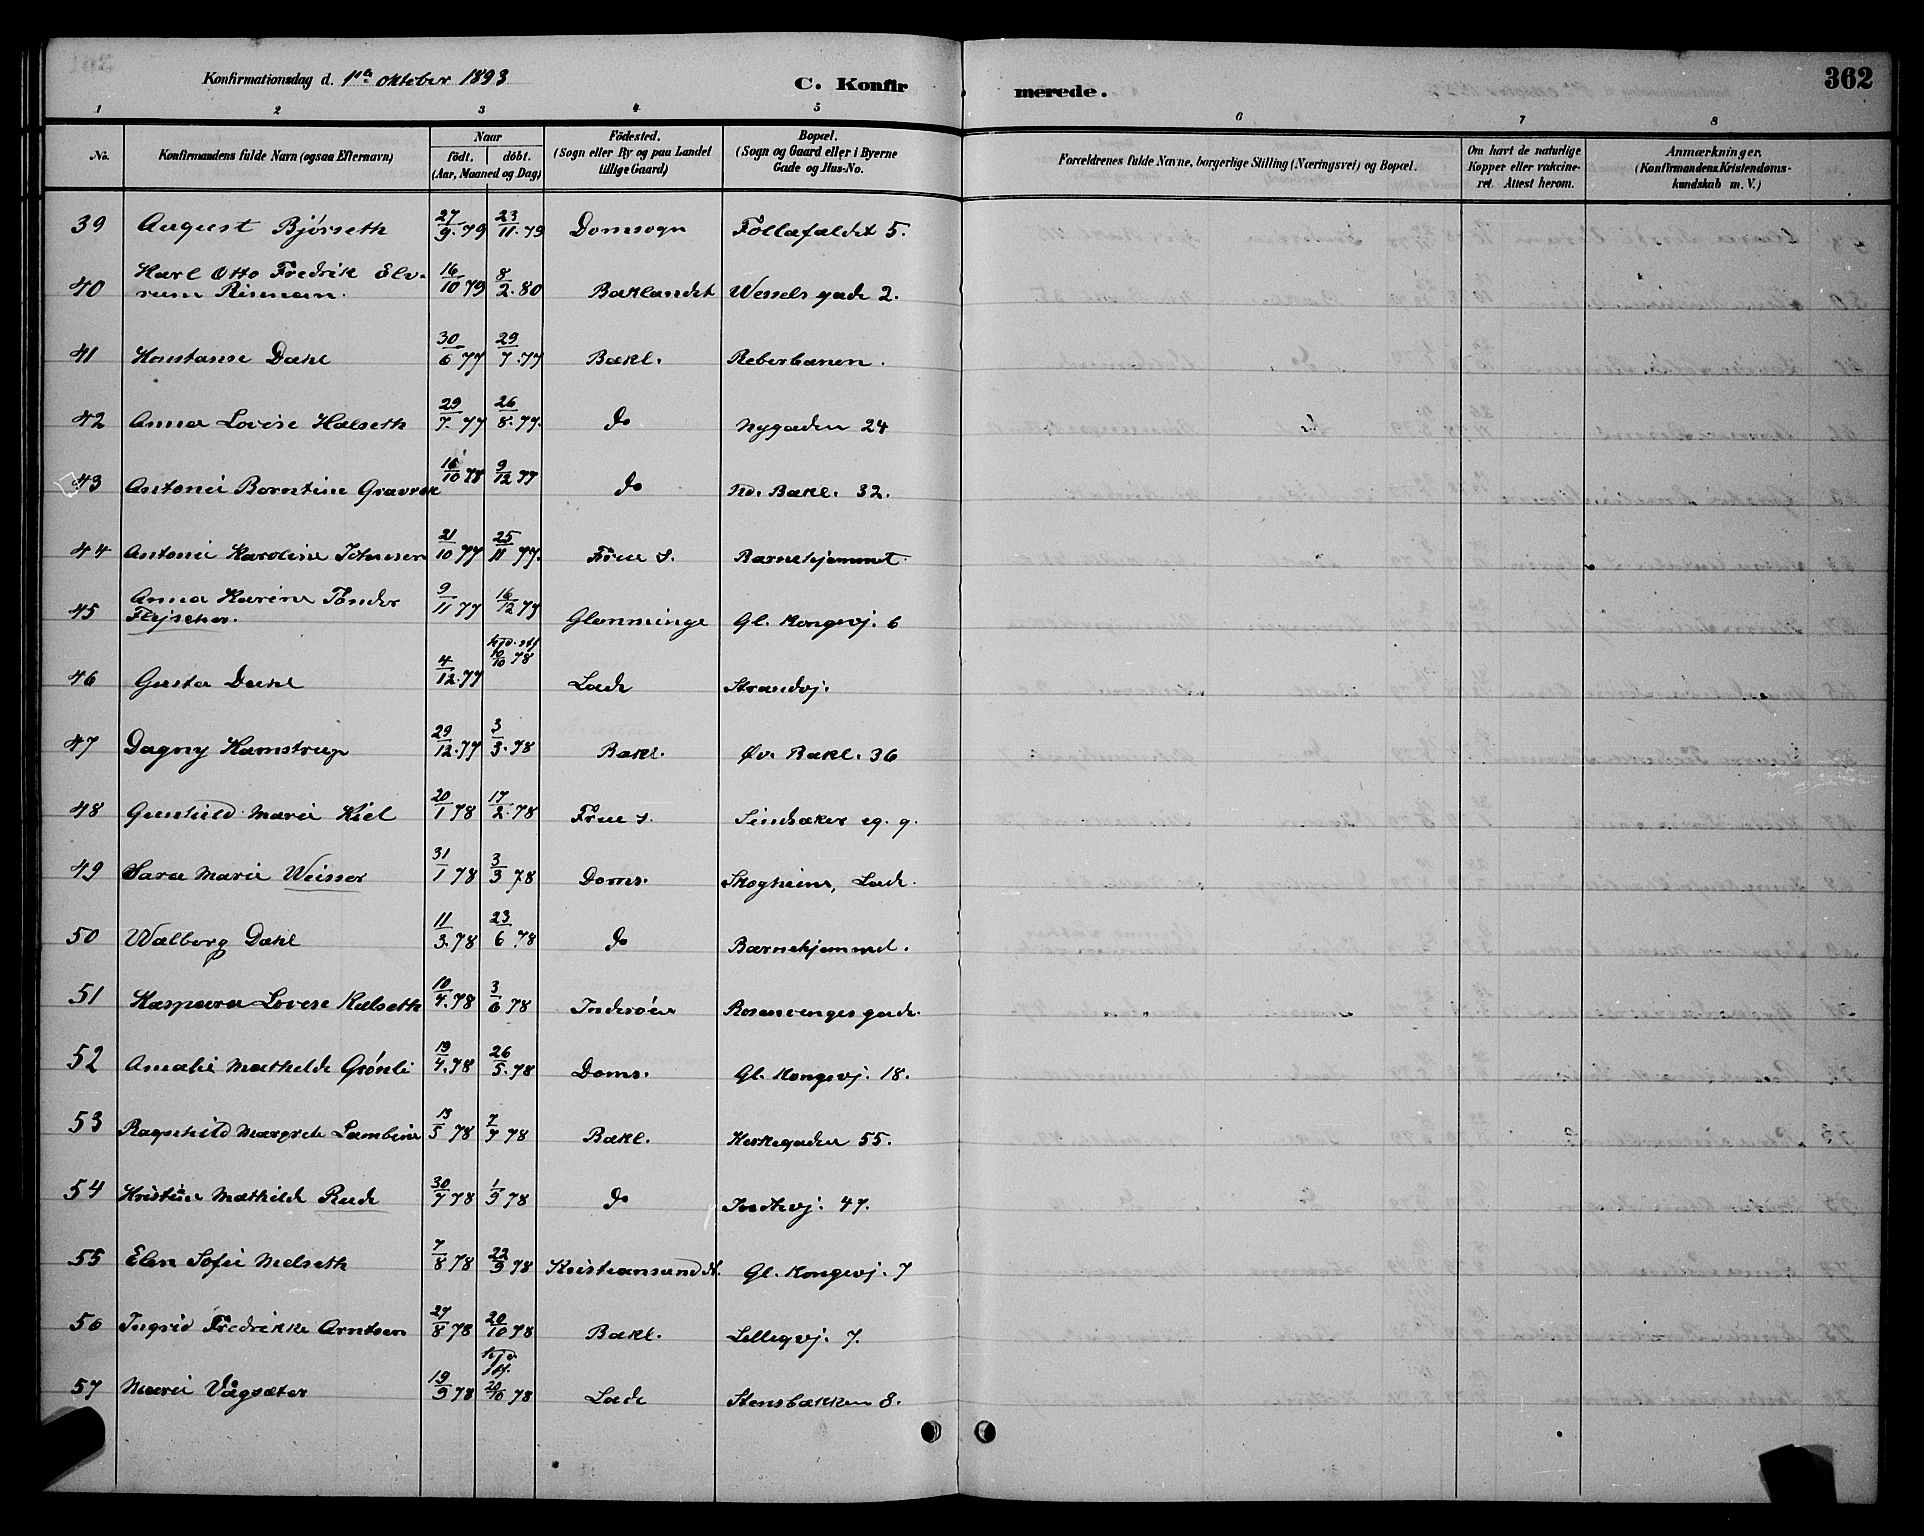 Konfirmationsdag d. 1ste oktober 1893
C. Konfir merede.
362
1 2 3 4 5 6 7 8
No.
Konfirmandens fulde Navn (ogsaa Efternavn)
Naar
födt. döbt.
(Aar, Maaned og Dag)
Födested.
(Sogn eller By og paa Landet
tillige Gaard)
Bopæl.
(Sogn og Gaard eller i Byerne
Gade og Hus-No.
Forældrenes fulde Navne, borgerlige Stilling (Næringsvei) og Bopæl.
Om havt de naturlige
Kopper eller vakcine-
ret. Attest herom.
Anmærkninger.
(Konfirmandens Kristendoms-
kundskab m. V.)
39 August Bjørseth 27/9.79 23/11.79 Domsogn Föllafaldet 5.
40 Karl Otto Fredrik Elv-
rum Risman. 16/10 79 8/2.80 Baklandet Wesselsgade 2.
41 Konstanse Dahl 30/6 77 29/7.77 Bakl. Reberbanen.
42 Anna Lovise Halseth 29/7.77 26/8.77. do Nygaden 24
43 Antonie Borntine Gravrok 16/10 78 9/12 77 do Nd. Bakl. 32.
44 Antonie Karoline Johnsen 21/10 77 25/11 77. Frue s. Barnehjemmet.
45 Anna Karine Tönder
Flejscher. 9/11 77 16/12 77 Glemminge Gl. Kongevj. 6
46 Gusta Dahl 4/12.77 hjd. stf 10/10 78 Lade Strandvj.
47 Dagny Kamstrup 29/12.77 3/3.78 Bakl. Øv. Bakl. 36
48 Gunhild Marie Kiel 20/1 78 17/2.78 Frue s. Sindsakes eg. g.
49 Sara Marie Weisser 31/1 78 3/3 78 Doms. Skogheim, Lade.
50 Walborg Dahl 11/3.78 23/6.78 do Barnehjemmet.
51 Kaspara Lovise Kalseth 10/4.78 3/6 78 Inderöen Rosenvinges gade.
52 Amalie Mathilde Grönli 19/4.78 26/5.78 Doms. Gl. Kongevj. 18.
53 Ragnhild Margrete Lambine 13/5 78 7/7 78 Bakl. Kirkegaden 55.
54 Kristine Mathilde Rude 30/7 78 1/9 78 do Indhvj. 47.
55 Elen Sofie Melseth 7/8 78 22/9 78 Kristiansund N. Gl. Kongevj. 7
56 Ingrid Fredrikke Arntsen 27/8 78 20/10 78 Bakl. Lillegvj. 7.
57 Marie Vågsæter 19/9 78 hjd. stf. 20/10 78 Lade Stensbakken 8.